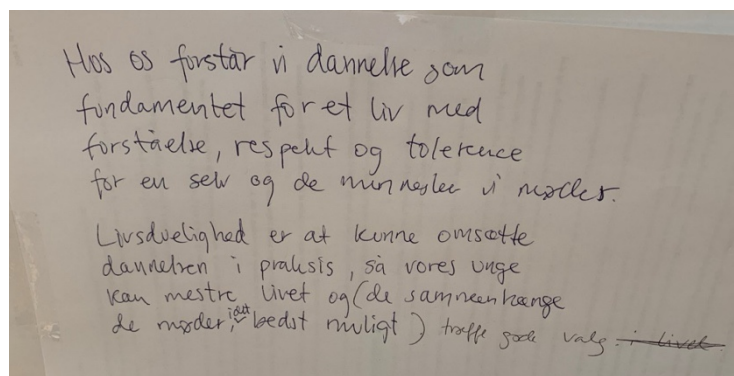 Hos os forstår vi dannelse som
fundamentet for et liv med
forståelse, respekt og tolerence
for en selv og de mennesker vi møder.
Livsduelighed er at kunne omsætte
dannelsen i praksis, så vores unge
kan mestre livet og (de sammenhænge
de møder, bedst muligt) træffe gode valg. i livet